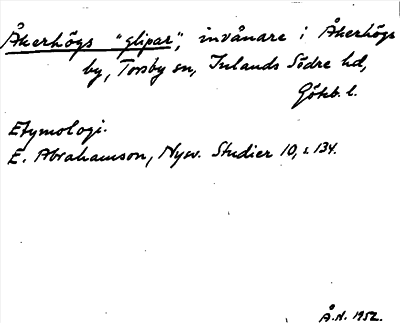 Åkerhögs "glipar", invånare i Åkerhögs
by, Torsby sn, Inlands Södre hd,
Götb. l.
Etymologi.
E. Abrahamson, Nysv. Studier 10, s 134.
Å.N. 1952.